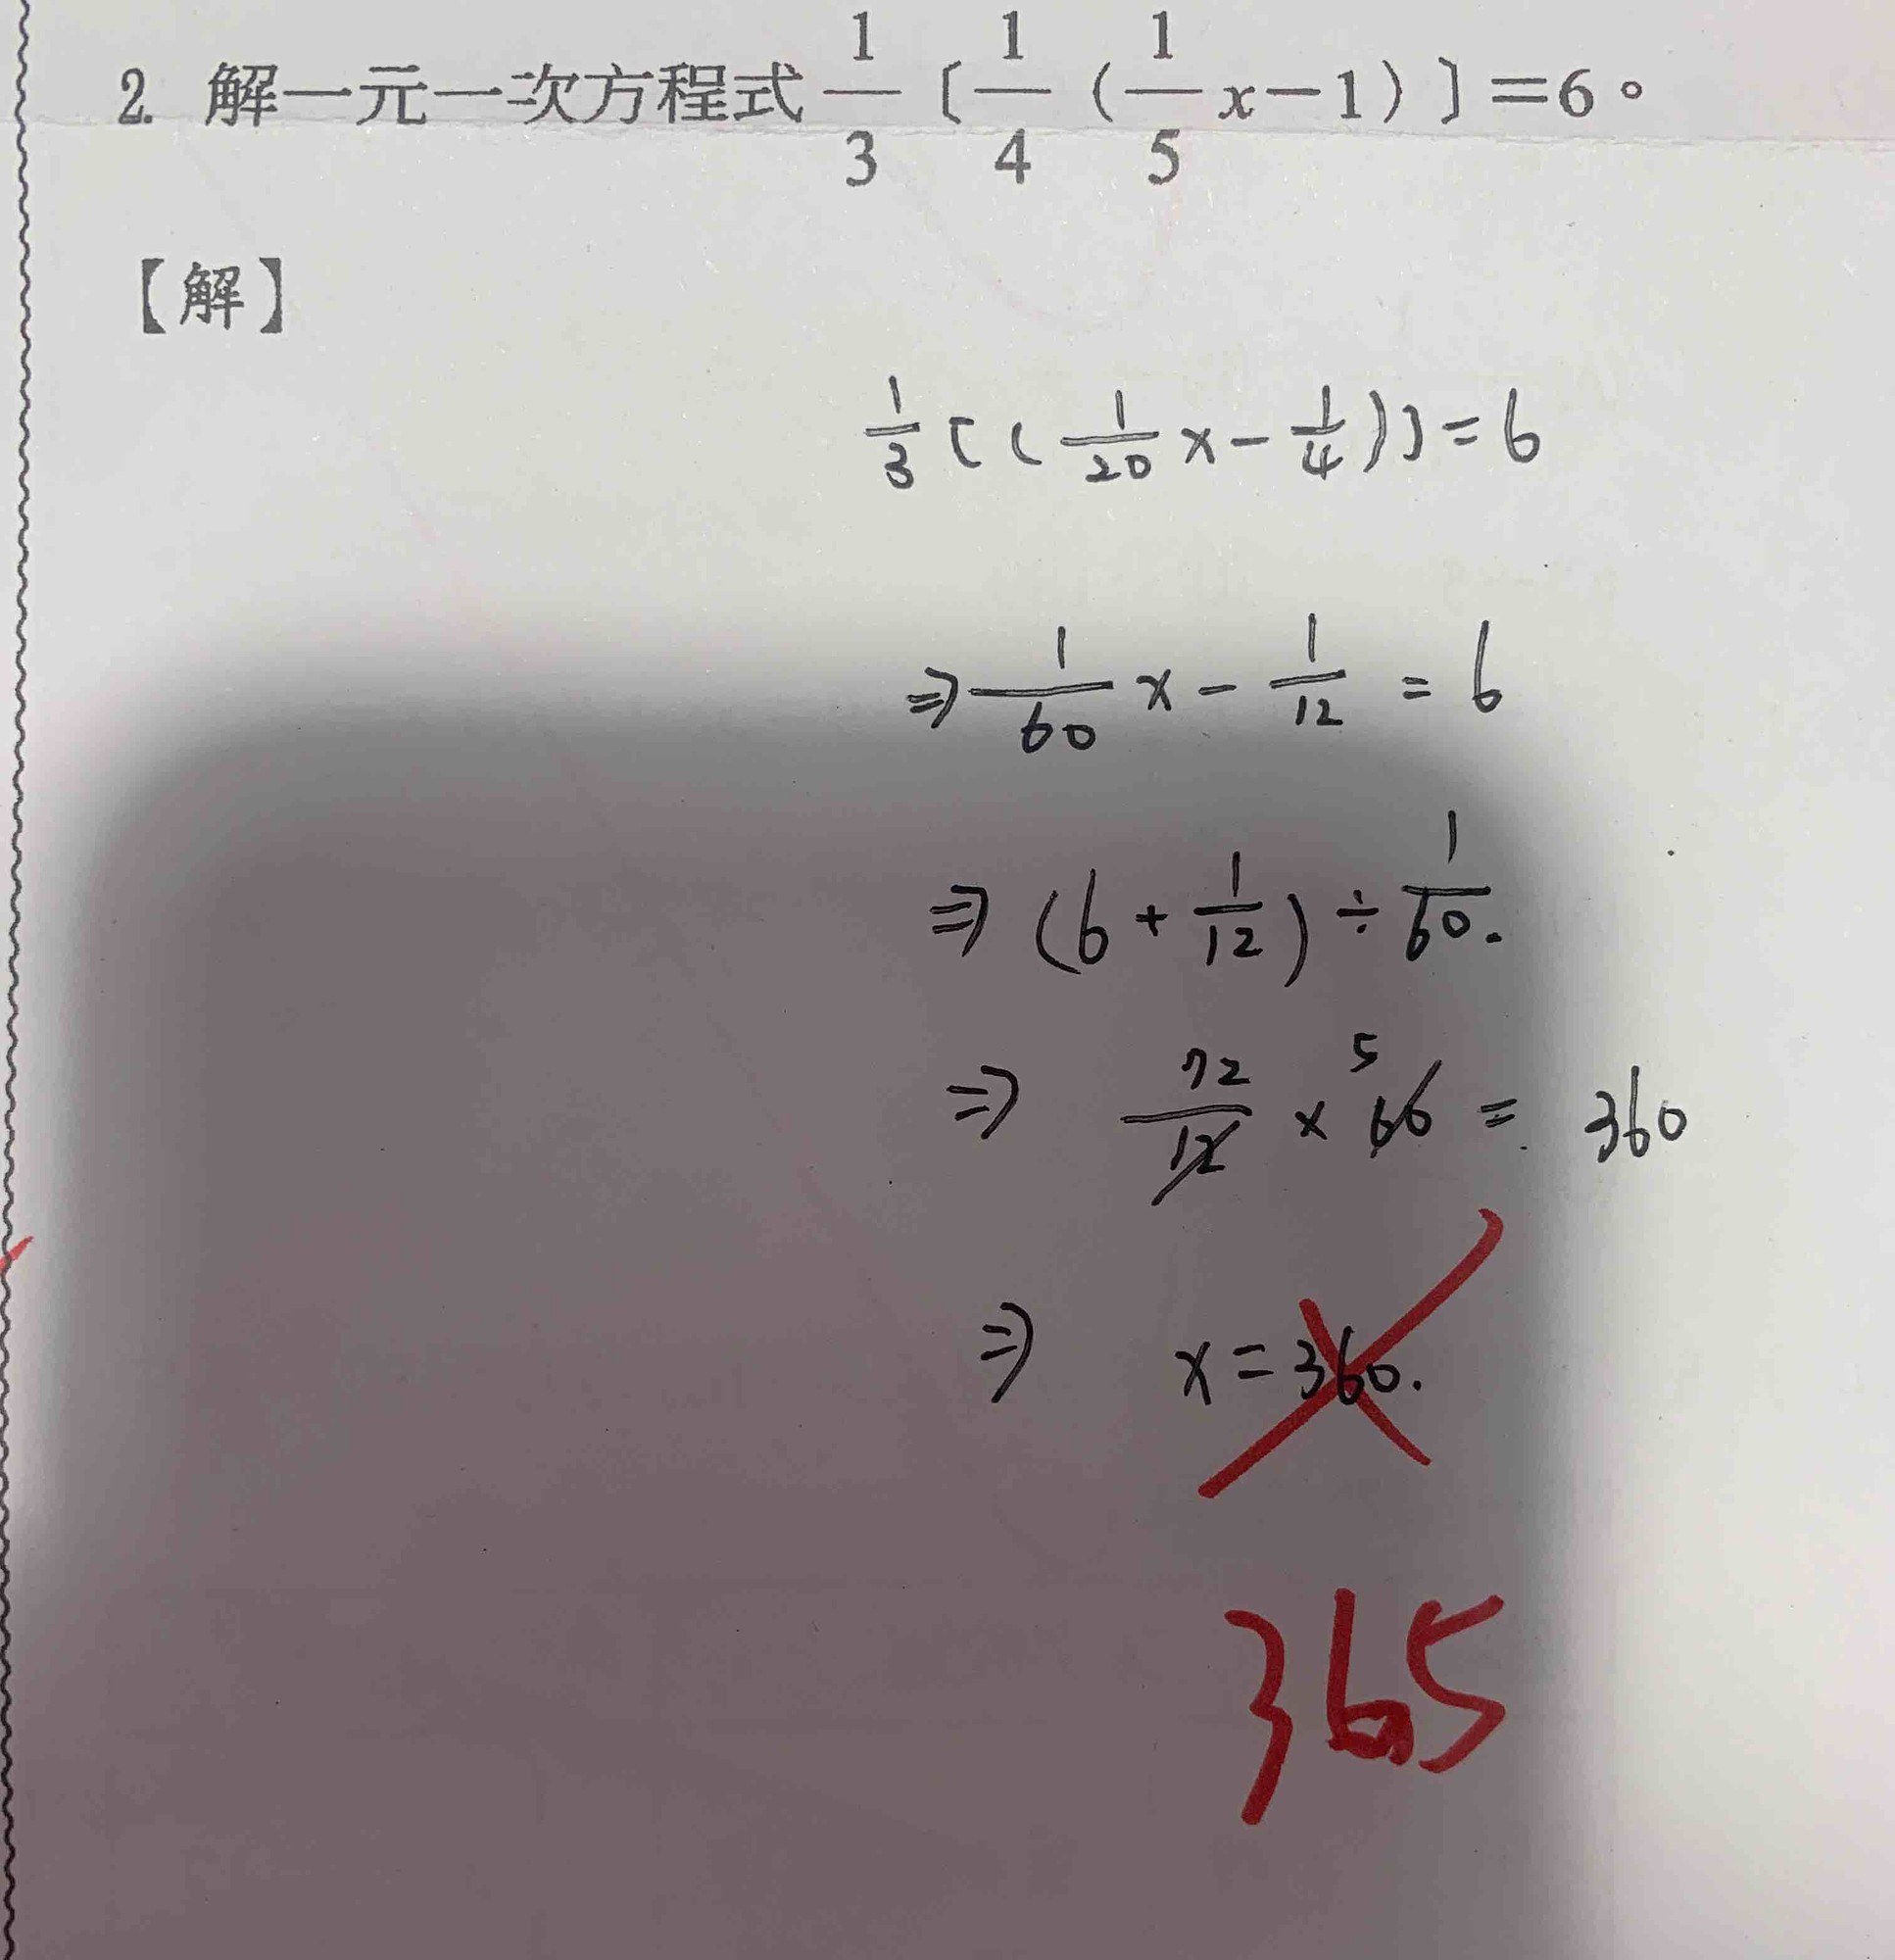 2. 解一元一次方程式 1/3〔1/4（1/5x－1）〕＝6。
【解】
1/3[(1/20x-1/4)]=6
⇒1/60x-1/12=6
⇒(6+1/12)÷1/60.
⇒ 72/12×60 5=360
⇒ x=360.
365